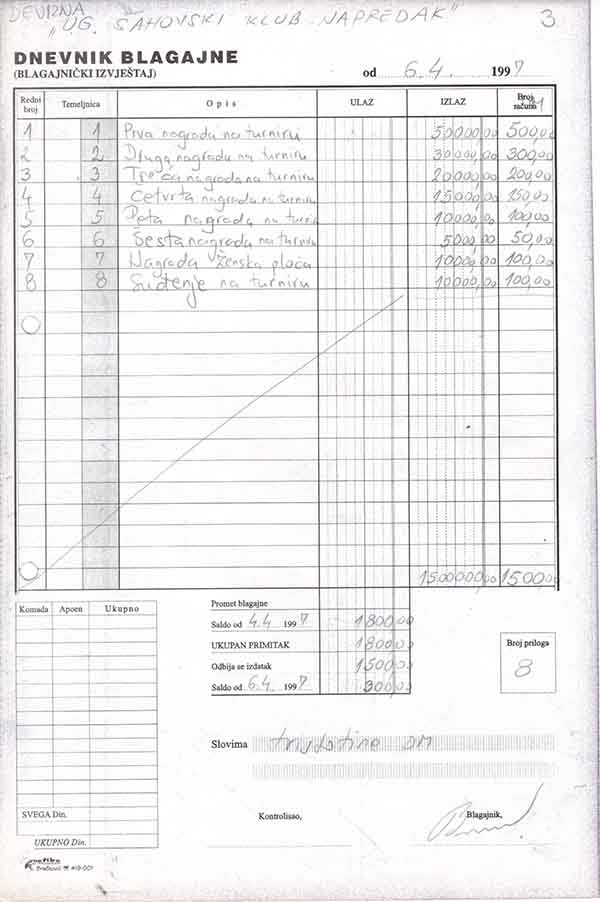 DEVIZNA
"UG. ŠAHOVSKI KLUB NAPREDAK" 3
DNEVNIK BLAGAJNE
(BLAGAJNIČKI IZVJEŠTAJ) od 6.4. 1997
Redni broj Temeljnica Opis ULAZ IZLAZ Broj računa
1 1 Prva nagrada na turniru 50000,00 500,00
2 2 Druga nagrada na turniru 30000,00 300,00
3 3 Treća nagrada na turniru 20000,00 200,00
4 4 Četvrta nagrada na turniru 15000,00 150,00
5 5 Peta nagrada na turni 10000,00 100,00
6 6 Šesta nagrada na turniru 5000,00 50,00
7 7 Nagrada ženska ploča 10000,00 100,00
8 8 Suđenje na turniru 10000,00 100,00
150000,00 1500,00
Komada Apoen Ukupno
Promet blagajne
Saldo od 4.4 1997 1800,00
UKUPAN PRIMITAK 1800,00
Odbija se izdatak 1500,00
Saldo od 6.4 1997 300,00
Broj priloga
8
Slovima tristotine DM
SVEGA Din.
Kontrolisao,
Blagajnik,
UKUPNO Din.